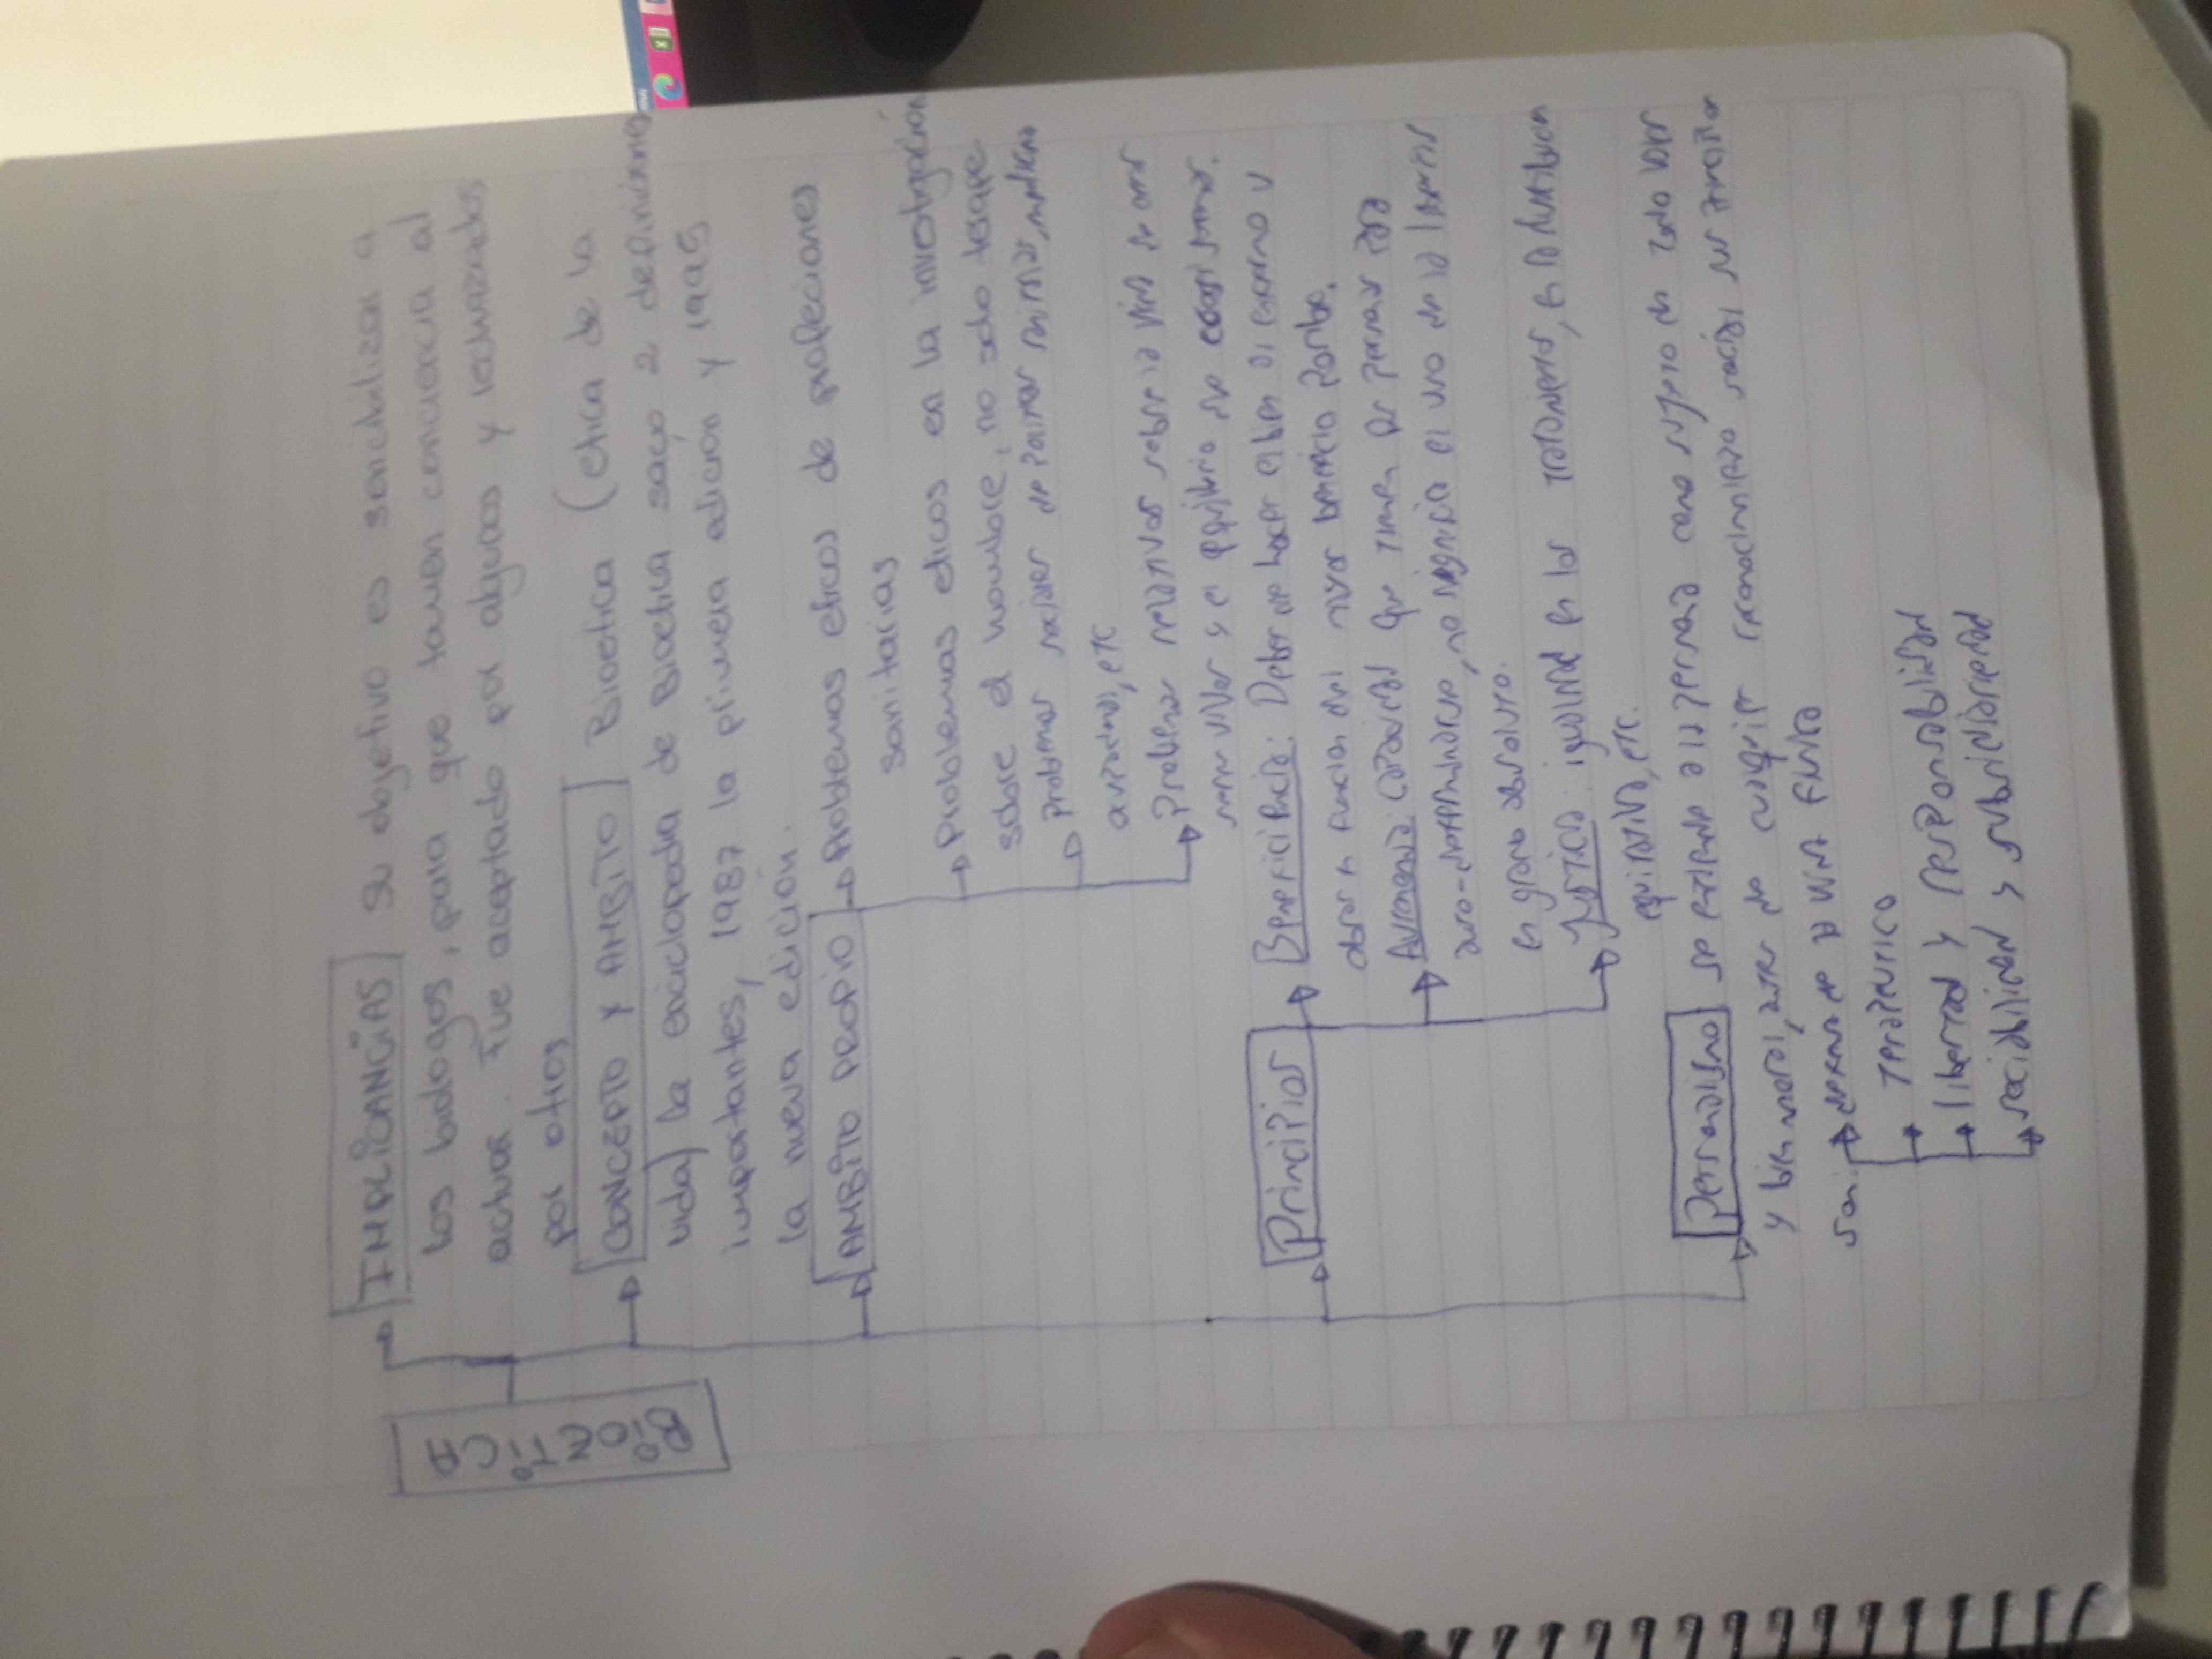 BIOETICA
IMPLICANCIAS Su objetivo es sencibilizar a
los biologos, para que tomen conciencia al
actuar. Fue aceptado por algunos y rechazados
por otros
CONCEPTO Y AMBITO Bioetica (etica de la
vida) la enciclopedia de Bioetica saco 2 definiciones
importantes, 1987 la primera edicion y 1995
la nueva edición.
AMBITO PROPIO Problemas eticos de profeciones
sanitarias
Problemas eticos en la investigación
sobre el hombre, no solo terape
problemas sociales de politicas medicas
etc
Problemas relativos sobre la vida de otros
seres vivos y el equilibrio de ecosistemas.
Principios Beneficiencia: Deber de hacer el bien al enfermo u
obrar en funcion del mayor beneficio posible.
Autonomia: capacidad que tienen las personas para
auto-determinarse, no significa el uso de la
en grado absoluto.
Justicia: igualdad en los tratamientos, en la
equitativa, etc.
Personalismo se entiende a la persona como sujeto de todo
y bien moral, antes de cualquier reconocimiento social
defensa de la vida fisica
terapeutico
libertad y responsabilidad
sociabilidad y subsidiariedad